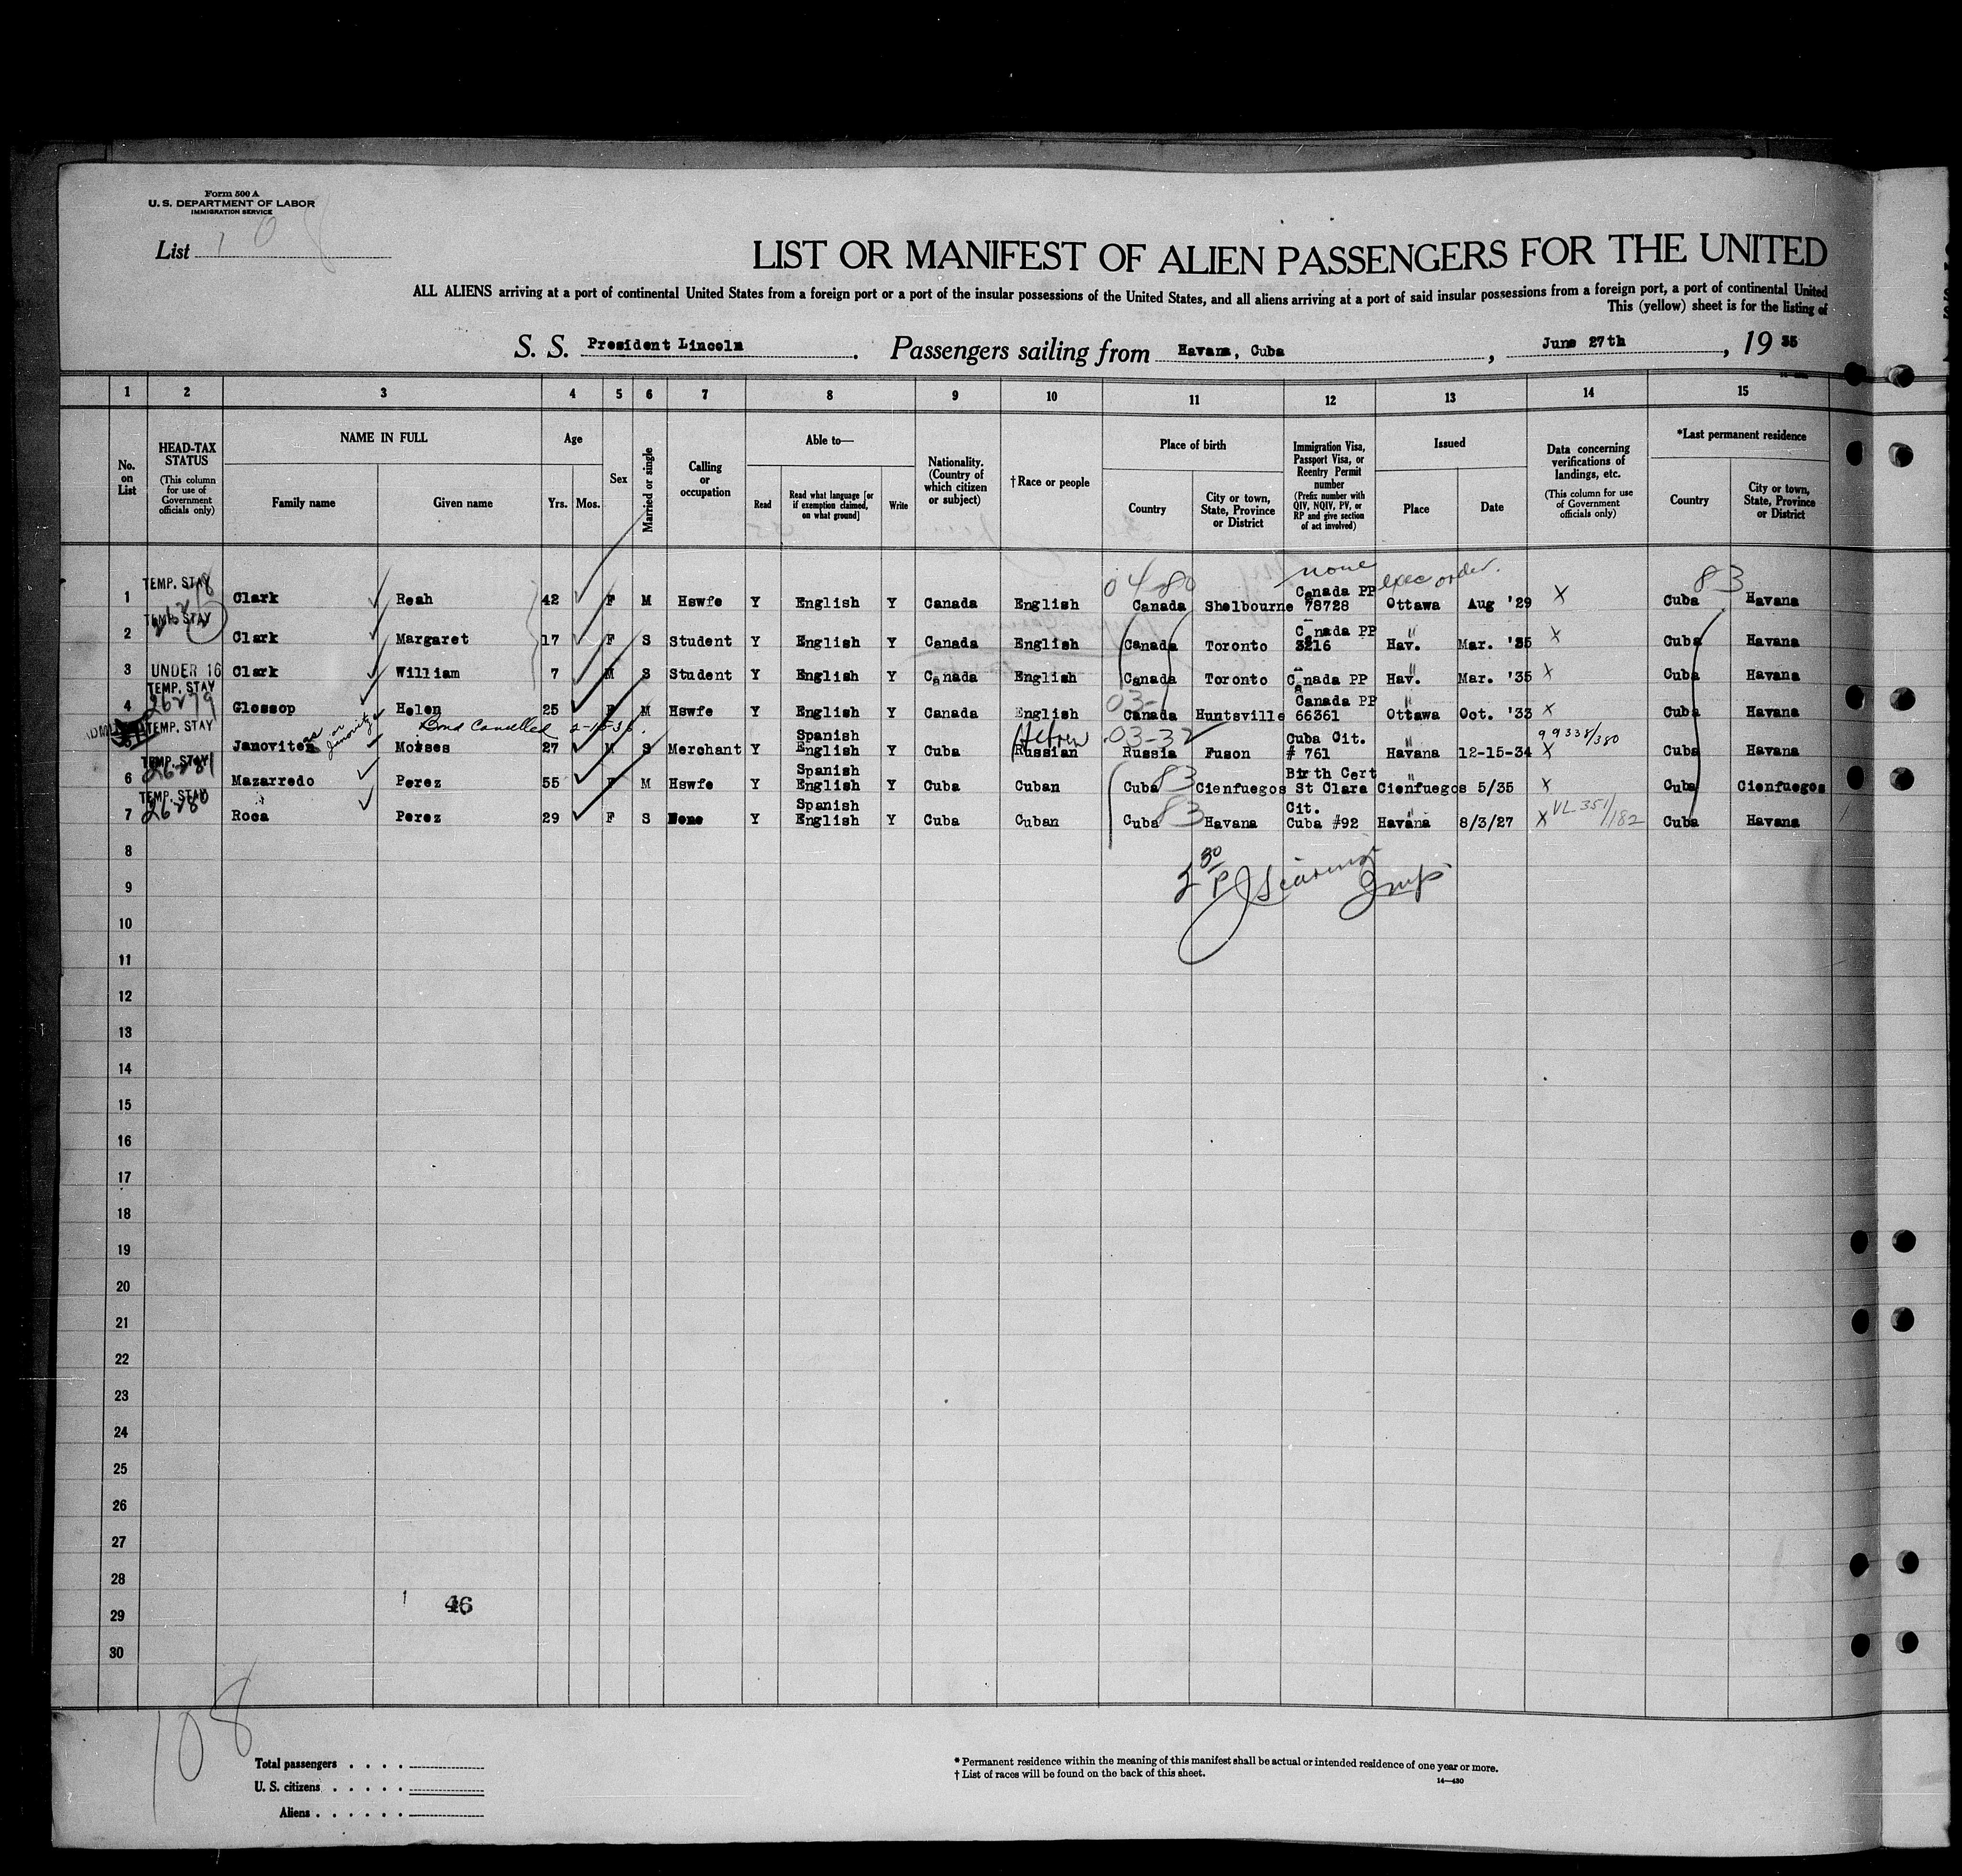 Form 500 A
U. S. DEPARTMENT OF LABOR
IMMIGRATION SERVICE
List 108
LIST OR MANIFEST OF ALIEN PASSENGERS FOR THE UNITED
ALL ALIENS arriving at a port of continental United States from a foreign port or a port of the insular possessions of the United States, and all aliens arriving at a port of said insular possessions from a foreign port, a port of continental United
This (yellow) sheet is for the listing of
S. S. President Lincoln. Passengers sailing from Havana, Cuba, June 27th, 19 35
1 2 3 4 5 6 7 8 9 10 11 12 13 14 15
No. on List
HEAD-TAX STATUS
(This column for use of Government officials only)
NAME IN FULL
Family name
Given name
Age
Yrs. Mos.
Sex
Married or single
Calling or occupation
Able to—
Read
Read what language [or if exemption claimed, on what ground]
Write
Nationality. (Country of which citizen or subject)
†Race or people
Place of birth
Country
City or town, State, Province or District
Immigration Visa, Passport Visa, or Reentry Permit number
(Prefix number with QIV, NQIV, PV, or RP and give section of act involved)
Issued
Place
Date
Data concerning verifications of landings, etc.
(This column for use of Government officials only)
*Last permanent residence
Country
City or town, State, Province or District
none exec order.
04-80 83
1 TEMP. STAY Clark Reah 42 F M Hswfe Y English Y Canada English Canada Shelbourne Canada PP 78728 Ottawa Aug '29 X Cuba Havana
2 TEMP. STAY Clark Margaret 17 F S Student Y English Y Canada English Canada Toronto Canada PP 3216 Hav. Mar. '35 X Cuba Havana
3 UNDER 16 Clark William 7 M S Student Y English Y Canada English Canada Toronto Canada PP Hav. Mar. '35 X Cuba Havana
4 TEMP. STAY 26279 Glossop Helen 25 F M Hswfe Y English Y Canada English 03- Canada Huntsville Canada PP 66361 Ottawa Oct. '33 X Cuba Havana
Bond Cancelled
5 TEMP. STAY Janovites Moises 27 M S Merchant Y Spanish English Y Cuba Hebrew Russian 03-32 Russia Fuson Cuba Cit. # 761 Havana 12-15-34 99338/380 X Cuba Havana
6 TEMP. STAY 26281 Mazarredo Perez 55 F M Hswfe Y Spanish English Y Cuba Cuban Cuba 83 Cienfuegos Birth Cert St Clara Cienfuegos 5/35 X Cuba Cienfuegos
7 TEMP. STAY 26280 Roca Perez 29 F S None Y Spanish English Y Cuba Cuban Cuba 83 Havana Cit. Cuba #92 Havana 8/3/27 X VL 351/182 Cuba Havana
8
9
10
11
12
13
14
15
16
17
18
19
20
21
22
23
24
25
26
27
28
29
30
46
108
Total passengers . . . .
U. S. citizens . . . . .
Aliens . . . . . .
* Permanent residence within the meaning of this manifest shall be actual or intended residence of one year or more.
† List of races will be found on the back of this sheet.
14—430